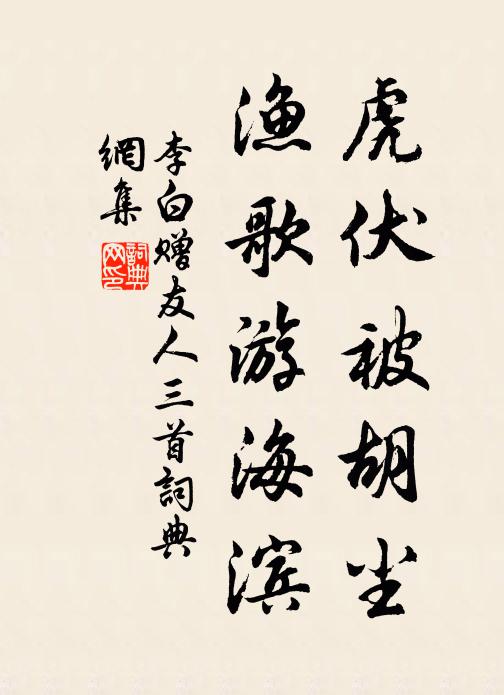 虎伏被胡尘
渔歌游海滨
李白赠友人三首詞典
網集
詞典
网印